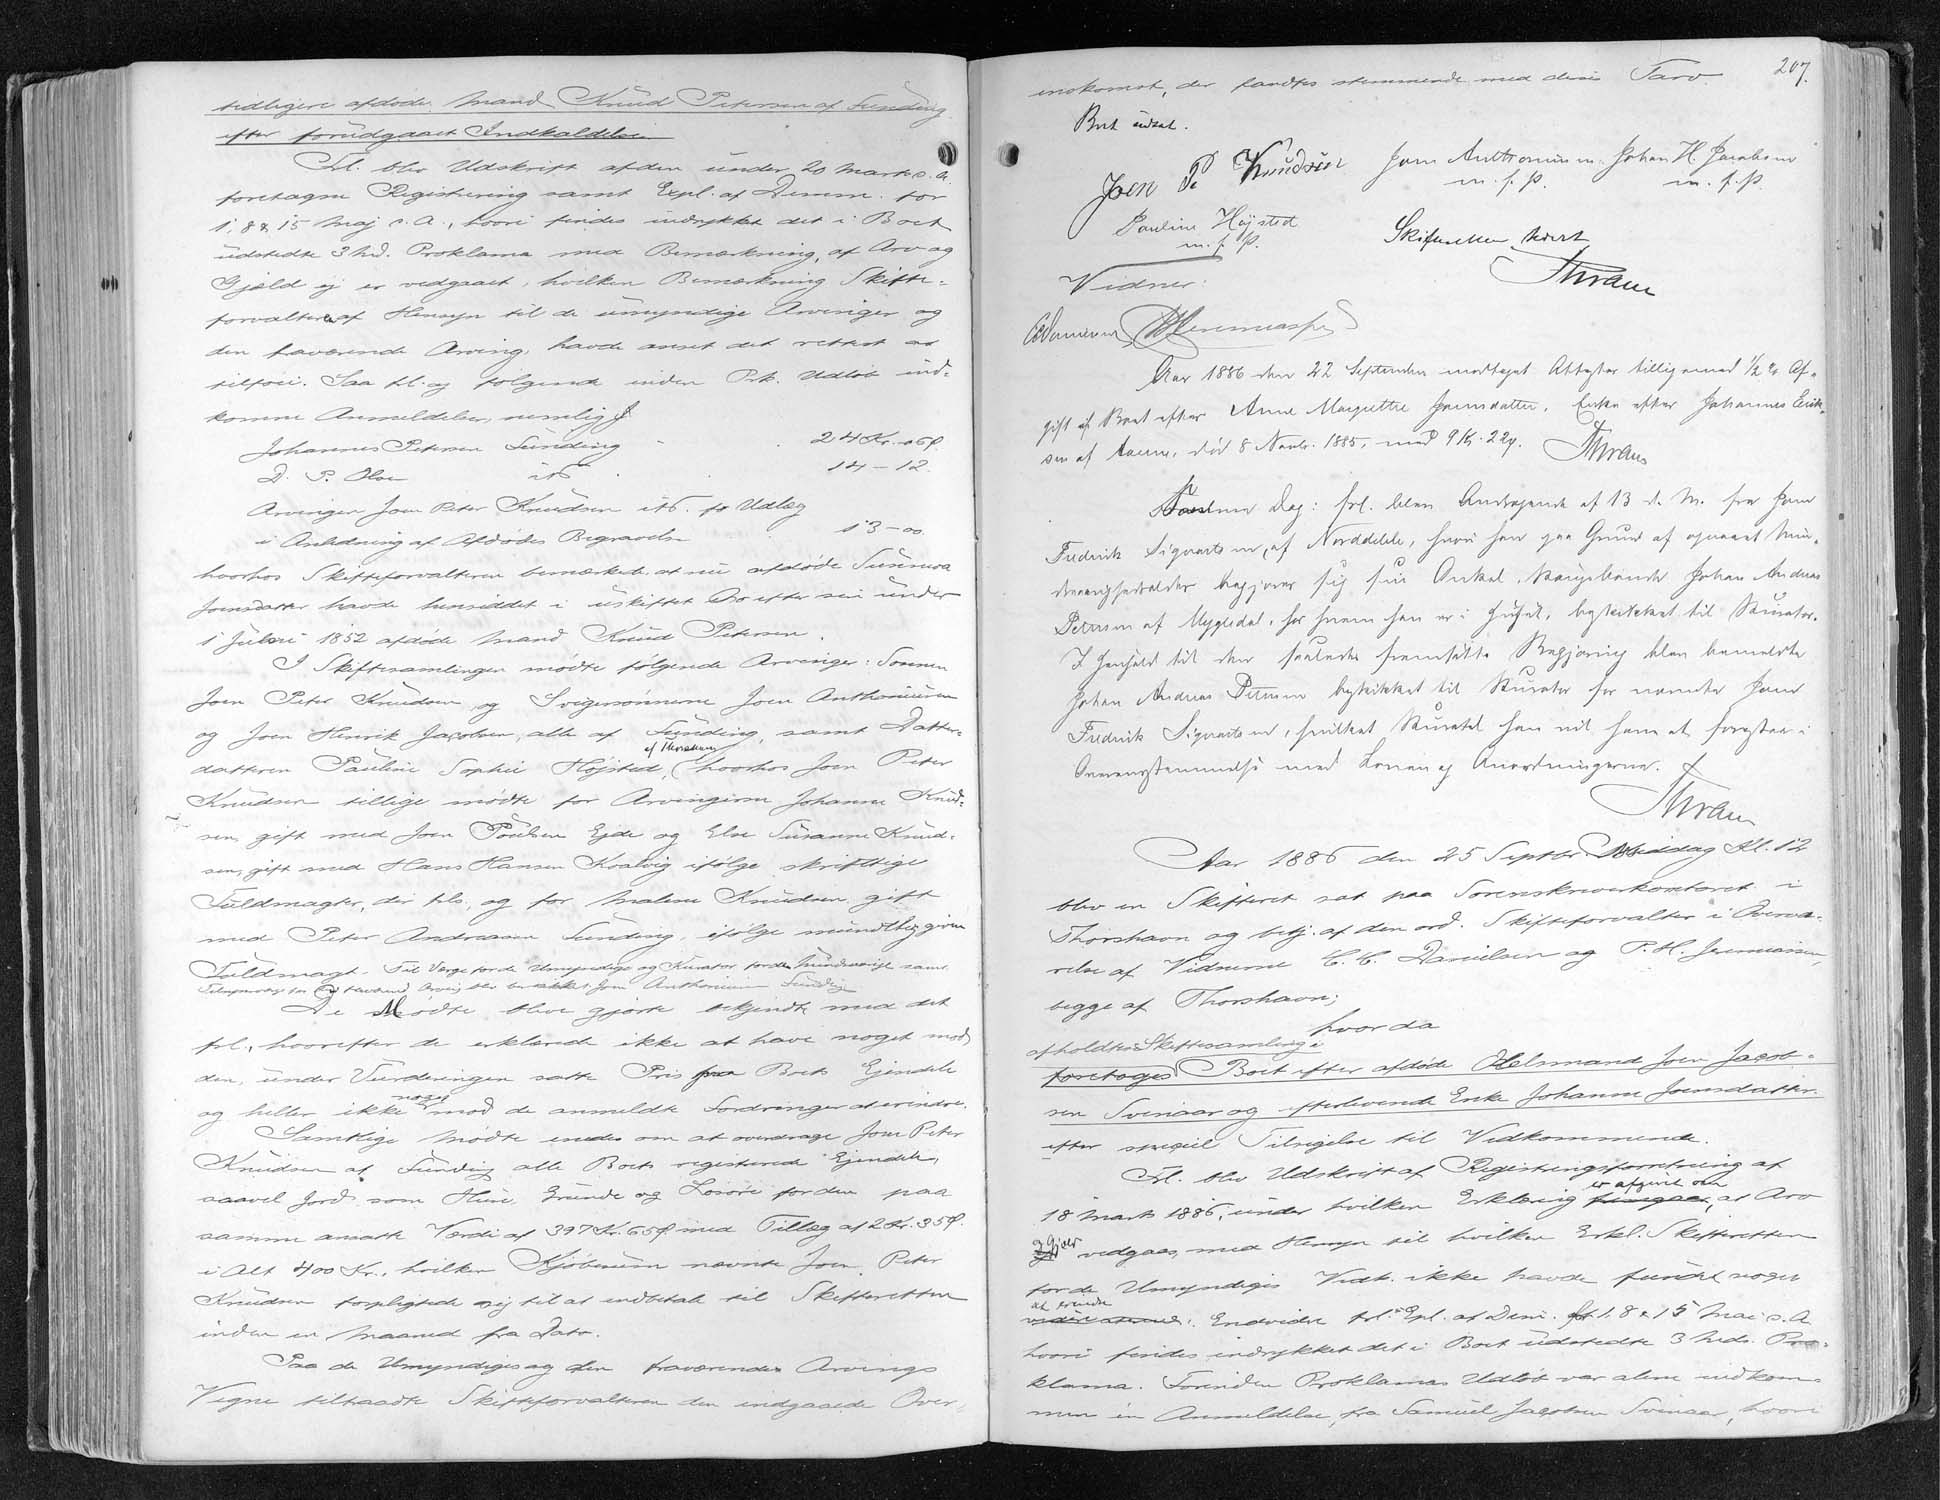 tidligere afdøde Mand Knud Petersen af Funding
efter forudgaaet Indkaldelse
Frl. blev Udskrift af den under 20 Marts c. A.
foretagne Registrering samt Expl. af Dimm. for
1, 8 & 15 Maj c. A., hvori findes indrykket det i Boet
udstedte 3 Md. Proklama med Bemærkning, at Arv og
Gjæld ej er vedgaaet, hvilken Bemærkning Skifte-
forvalteren af Hensyn til de umyndige Arvinger og
den fraværende Arving, havde anset det rettest at
tilføie. Saa frl. og følgende inden Prk. Udløb ind-
komne Anmeldelser, nemlig f.
Johannes Petersen Funding 24 Kr. 06 Ø.
D. P. Olsen ibd. 14 - 12.
Arvingen Joen Peter Knudsen ibd. for Udlæg
i Anledning af Afdødes Begravelse 13 - 00.
hvorhos Skifteforvalteren bemærkede at nu afdøde Sunneva
Joensdatter havde hensiddet i uskiftet Bo efter sin under
1 Juleri 1852 afdøde Mand Knud Petersen.
I Skiftesamlingen mødte følgende Arvinger: Sønnen
Joen Peter Knudsen, og Svigersønnerne Joen Anthoniussen
og Joen Henrik Jacobsen, alle af Funding, samt Datter-
datteren Pauline Sophie Højsted, af Thorshavn (hvorhos Joen Peter
Knudsen tillige mødte for Arvingerne Johanne Knud-
sen, gift med Joen Poulsen Ejde og Else Susanne Knud-
sen, gift med Hans Hansen Kvalvig ifølge skriftlige
Fuldmagter, der frls, og for Malene Knudsen gift
med Peter Andreasen Funding, ifølge mundtlig given
Fuldmagt. Til Værge for de Umyndige og Kurator for den Mindreaarige samt
for den fraværende Arving blev beskikket Joen Anthoniussen Funding
De Mødte blive gjorte bekjendte med det
frl., hvorefter de erklærede ikke at have noget mod
den, under Vurderingen satte Pris paa Boets Ejendele
og heller ikke noget mod de anmeldte Fordringer at erindre.
Samtlige Mødte enedes om at overdrage Joen Peter
Knudsen af Funding alle Boets registrerede Ejendele,
saavel Jord som Huse, Grunde og Løsøre for den paa
samme ansatte Værdi af 397 Kr. 65 Ø. med Tillæg af 2 Kr. 35 Ø.
i Alt 400 Kr., hvilken Kjøbesum nævnte Joen Peter
Knudsen forpligtede sig til at indbetale til Skifteretten
inden en Maaned fra Dato.
Paa de Umyndiges og den fraværende Arvings
Vegne tiltraadte Skifteforvalteren den indgaaede Over-
207.
enskomst, der fandtes stemmende med deres Tarv.
Boet udsat.
Joen P. Knudsen Joen Anthoniussen Johan H. Jacobsen
m. f. P. m. f. P.
Pauline Højsted
m. f. P.
Skifteretten hævet
Thran
Vidner:
CDanielsen PHJeremiassen
Aar 1886 den 22 September modtaget Attester tilligemed ½ % Af-
gift af Boet efter Anne Magrethe Joensdatter, Enke efter Johannes Erik-
sen af , død 8 Novbr. 1885, med 9 Kr. 22 Ø. Thran
Samme Dag: frl. blev Andragende af 13 d. M. fra Joen
Fredrik Sigvartsen, af Norddeble, hvori han paa Grund af opnaaet Min-
dreaarighedsalder begjærer sig sin Onkel, Kongsbonde Johan Andreas
Petersen af Mygledal, hos hvem han er i Huset, beskikket til Kurator.
I Henhold til den saaledes fremsatte Begjæring blev bemeldte
Johan Andreas Petersen beskikket til Kurator for nævnte Joen
Fredrik Sigvartsen, hvilket Kuratel han vil have at forestaa i
Overensstemmelse med Loven og Anordningerne.
Thran
Aar 1886 den 25 Septbr. Middag Kl. 12
blev en Skifteret sat paa Sorenskriverkontoret i
Thorshavn og betj. af den ord. Skifteforvalter i Overvæ-
relse af Vidnerne C. C. Danielsen og P. H. Jeremiassen,
begge af Thorshavn;
hvor da
afholdtes Skiftesamling i
foretoges Boet efter afdøde Helmand Joen Jacob-
sen Svinaar og efterlevende Enke Johanne Joensdatter
efter speciel Tilsigelse til Vedkommende.
Frl. blev Udskrift af Registreringsforretning af
18 Marts 1886, under hvilken Erklæring er afgivet om, at Arv
& Gjæld vedgaas, med Hensyn til hvilken Erkl. Skifteretten
for de Umyndiges Vedk. ikke havde fundet noget
at erindre. Endvidere frl. Expl. af Dim. for 1, 8 & 15 Mai c. A.
hvori findes indrykket det i Boet udstedte 3 Mds. Pro-
klama. Forinden Proklamas Udløb var alene indkom-
men én Anmeldelse, fra Samuel Jacobsen Svinaar, hvori